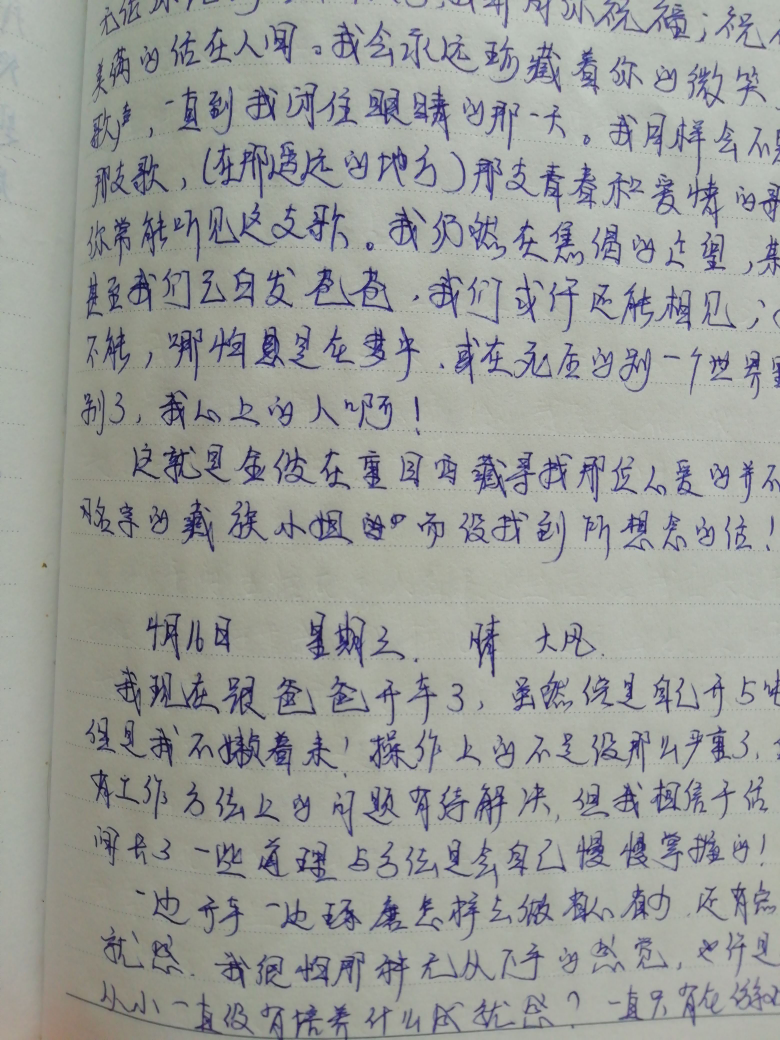 你祝福；祝
美满的活在人间。我会永远珍藏着你的微笑
歌声，一直到我闭住眼睛的那一天。我同样会不
那支歌，（在那遥远的地方）那支青春和爱情的歌
你常能听见这支歌。我仍然在焦渴的企望，某
甚至我们已白发苍苍，我们或许还能相见；
不能，哪怕是在梦中，或在死后的别一个世界里
别了，我心上的人啊！
这就是金波在重回西藏寻找那位心爱的并不
名字的藏族小姐的 而没找到所想念的话！
4月16日 星期三. 晴 大风.
我现在跟爸爸开车了，虽然总是自己开5吨
但是我不嫩着来！操作上的不足没那么严重了，
有工作方法上的问题有待解决，但我相信干活
间长了一些道理与方法是会自己慢慢掌握的！
一边开车一边琢磨怎样去做 还有
就感. 我很怕那种无从下手的感觉，也许是
从小一直没有培养什么成就感？一直只有在